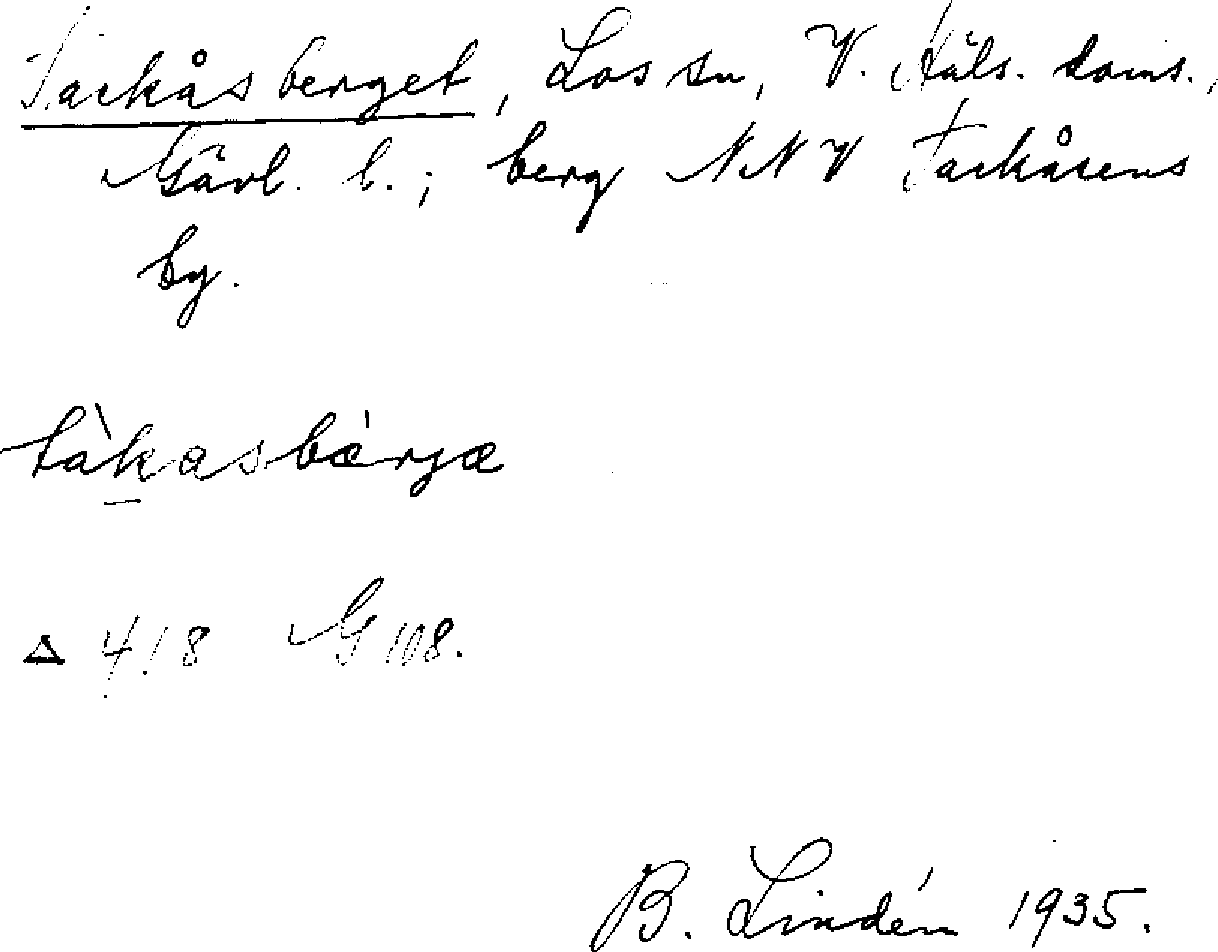 Tackåsberget, Los sn, V. Häls. doms.,
Gävl. l.; berg NNV Tackåsens
by.
tàkasbærjæ
△ 418 G 108.
B. Lindén 1935.